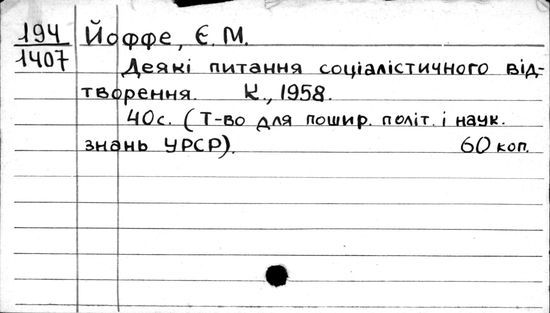 194 Йоффе, Є. М.
1407
Деякі питання соціалістичного від-
творення. К., 1958.
40с. (Т-во для пошир. політ. і наук.
знань УРСР). 60 коп.